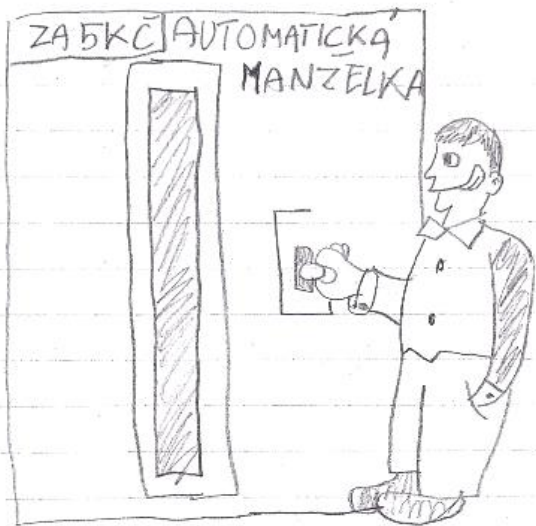 ZA 5 KČ AUTOMATICKÁ
MANŽELKA